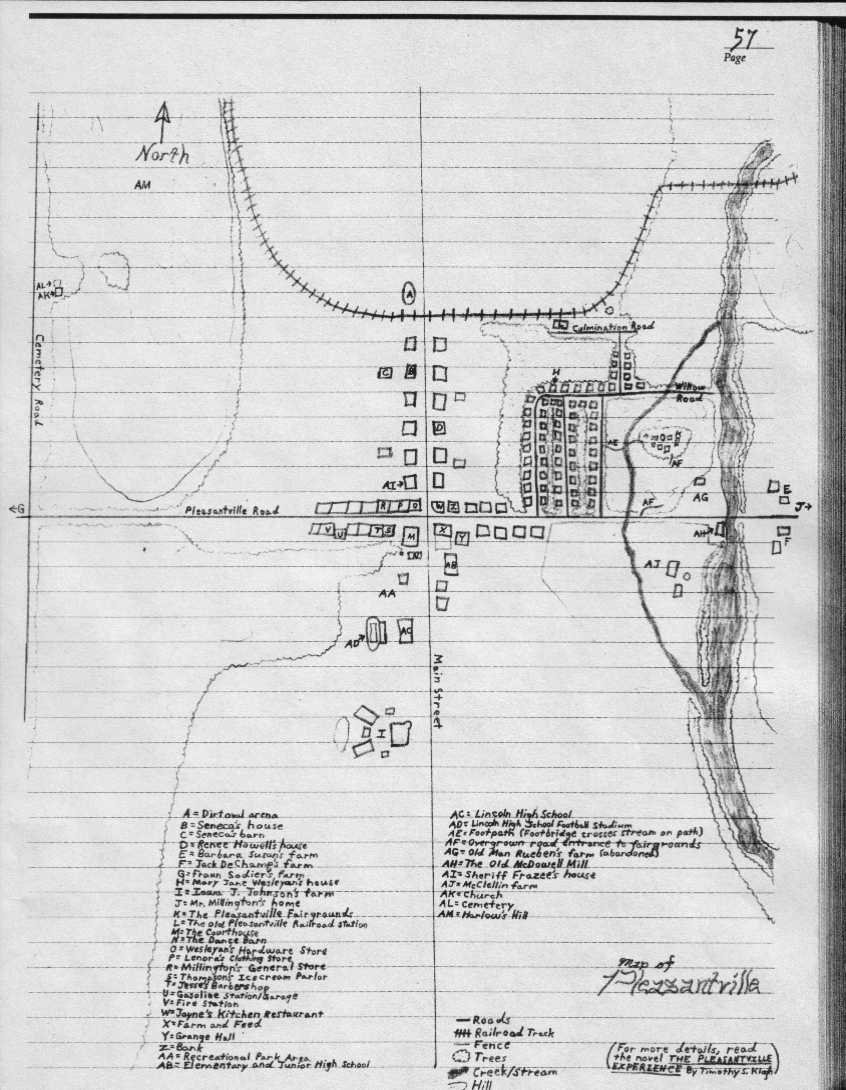 57
Page
North
AM
AL→
AK→
A
Culmination Road
Cemetery Road
C
B
H
Willow Road
D
AE
K
AF
AI→
AG
E
←G
Pleasantville Road
R P O
W Z
AF
J→
V U T S
M
X
Y
AH→
F
N
AB
AJ
AA
AD→
AC
Main Street
I
A = Dirtoval arena
B = Seneca's house
C = Seneca's barn
D = Renee Howell's house
E = Barbara Susan's farm
F = Jack DeChamp's farm
G = Frann Sadier's farm
H = Mary Jane Wesleyan's house
I = Ioau J. Johnson's farm
J = Mr. Millington's home
K = The Pleasantville Fairgrounds
L = The Old Pleasantville Railroad Station
M = The Courthouse
N = The Dance Barn
O = Wesleyan's Hardware Store
P = Lenora's Clothing Store
R = Millington's General Store
S = Thompson's Icecream Parlor
T = Jesse's Barbershop
U = Gasoline Station/Garage
V = Fire Station
W = Jayne's Kitchen Restaurant
X = Farm and Feed
Y = Grange Hall
Z = Bank
AA = Recreational Park Area
AB = Elementary and Junior High School
AC = Lincoln High School
AD = Lincoln High School Football Stadium
AE = Footpath (Footbridge crosses stream on path)
AF = Overgrown road entrance to fairgrounds
AG = Old Man Rueben's farm (abandoned)
AH = The Old McDowell Mill
AI = Sheriff Frazee's house
AJ = McClellin farm
AK = Church
AL = Cemetery
AM = Harlow's Hill
Map of
Pleasantville
Roads
Railroad Track
Fence
Trees
Creek/Stream
Hill
(For more details, read
the novel THE PLEASANTVILLE
EXPERIENCE By Timothy S. Klugh)